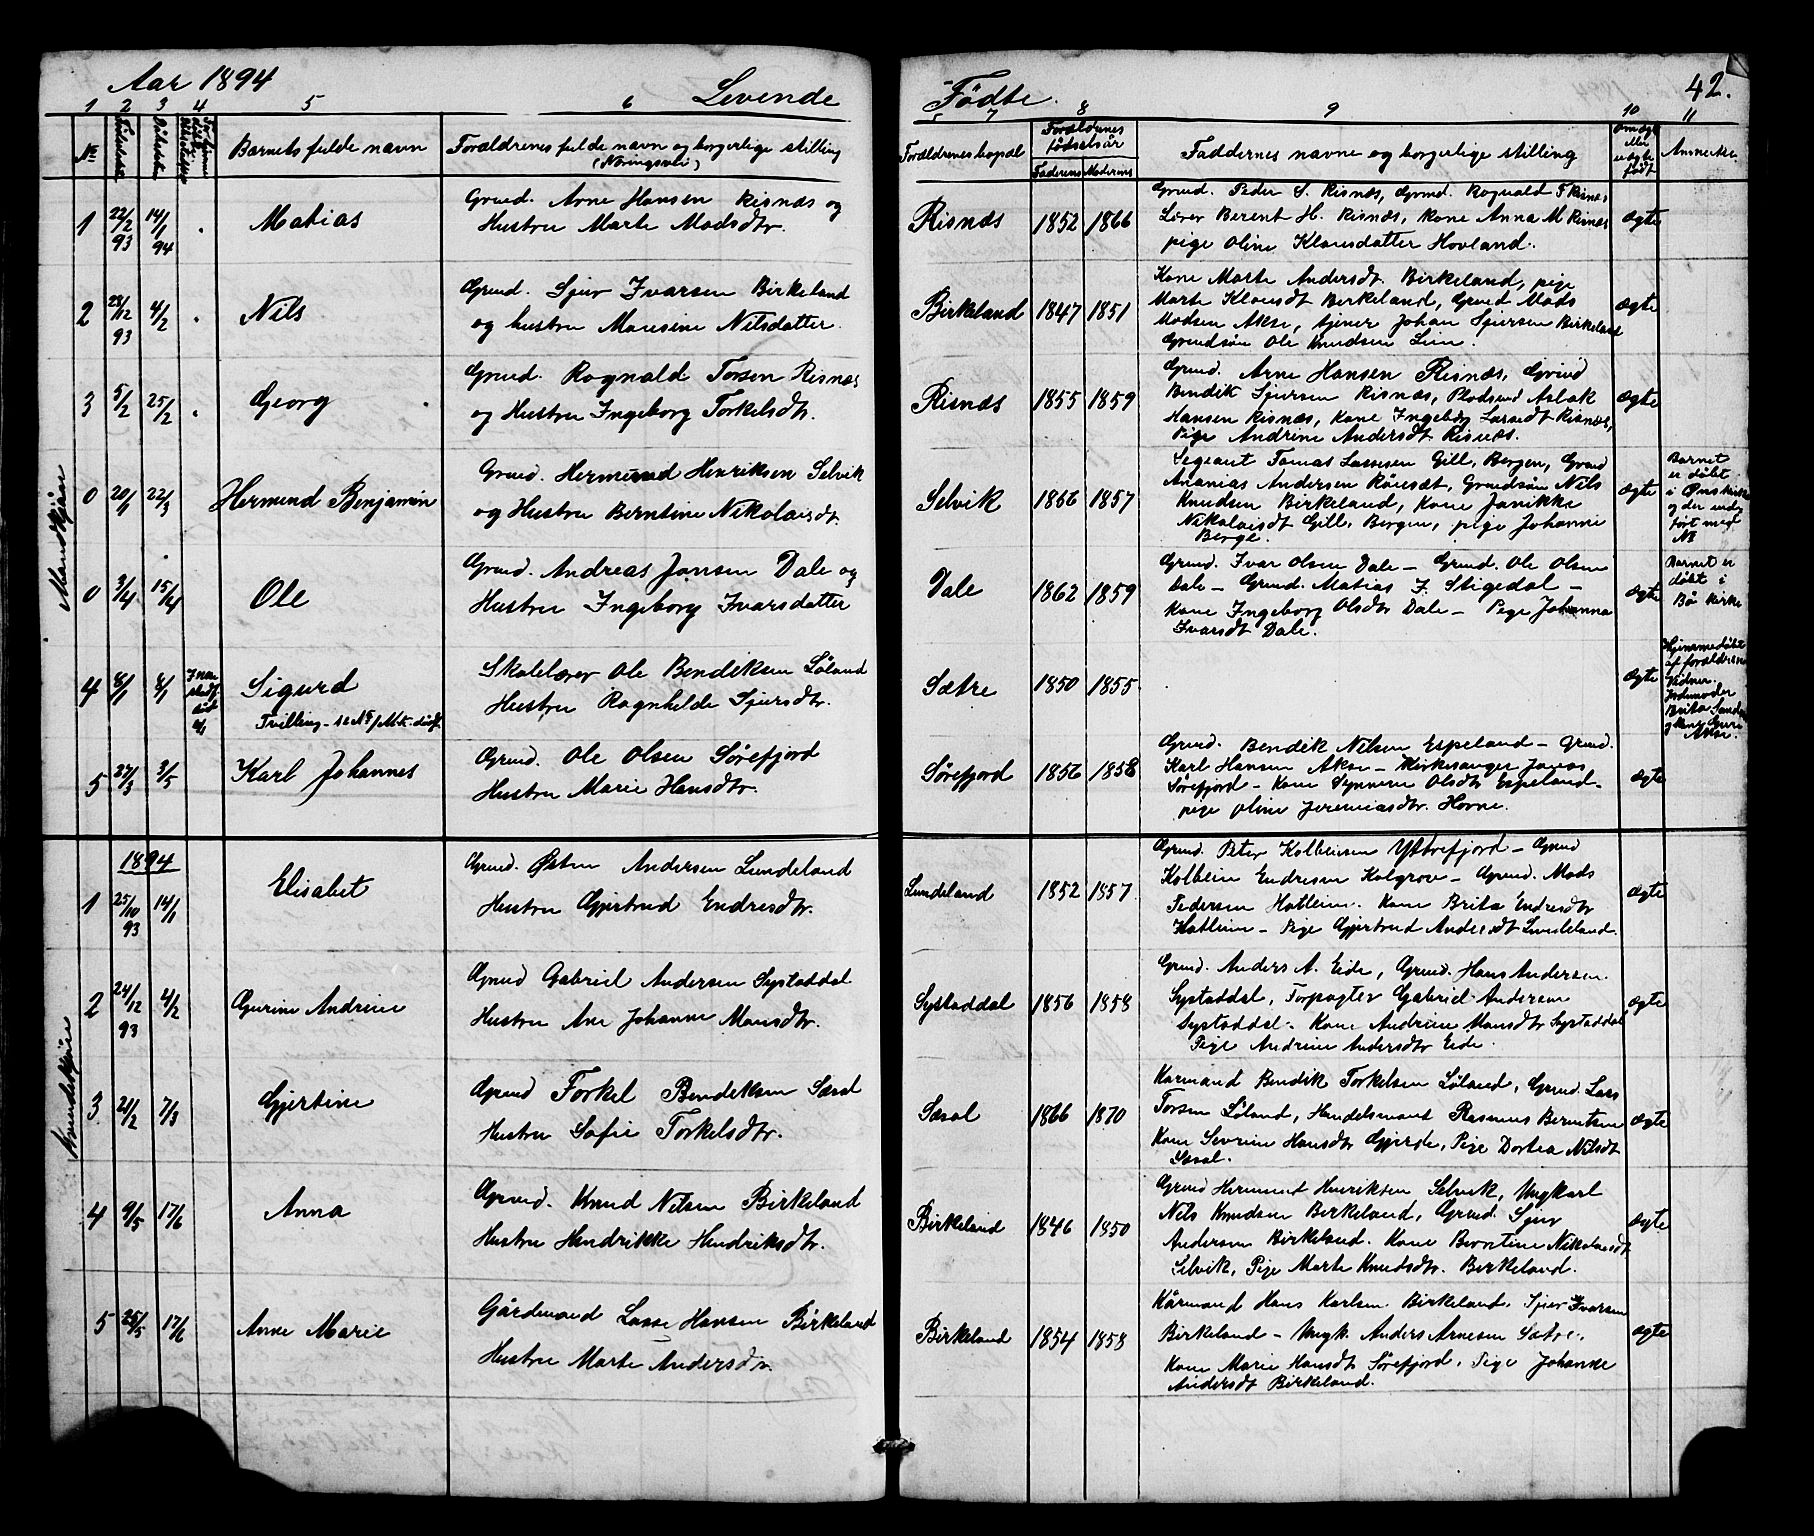 Aar 1894 Levende Fødte. 42.
1 2 3 4 5 6 7 8 9 10 11
No Fødselsdat. Dåbsdat. Barnets fulde navn Forældrenes fulde navn og borgerlige stilling Forældrenes bopæl Forældrenes fødselsår Faddernes navne og borgerlige stilling ægte eller uægte født Anmerkn.
(Næringsvei) Faderens Moderens
Mandkjøn
1 22/2 93 14/1 94 Matias
Grmd. Arne Hansen Risnæs og
Hustru Marte Madsdtr.
Risnæs 1852 1866
Grmd. Peder S. Risnæs, Grmd. Rognald T Risnæs,
Lærer Berent H. Risnæs, Kone Anna M Risnæs
pige Oline Klausdatter Hovland.
ægte
2 28/12 93 4/2 Nils
Grmd. Sjur Ivarsen Birkeland
og hustru Maresine Nilsdatter.
Birkeland 1847 1851
Kone Marte Andersdt. Birkeland, pige
Marte Klausdt Birkeland, Grmd Mads
Madsen Akse, tjener Johan Sjursen Birkeland
Grmdsøn Ole Knudsen Lien.
ægte
3 5/2 25/2 Georg
Grmd. Rognald Torsen Risnæs
og Hustru Ingeborg Torkelsdtr.
Risnæs 1855 1859
Grmd. Arne Hansen Risnæs, Grmd
Bendik Sjursen Risnæs, Pladsmd Aslak
Hansen Risnæs, Kone Ingeborg Larsdt Risnæs,
Pige Andrine Andersdt. Risnæs.
ægte
0 20/1 22/3 Hermund Benjamin
Grmd. Hermund Henriksen Selvik
og Hustru Berntine Nikolaisdt.
Selvik 1866 1857
Segeant Tomas Lassesen Gill, Bergen, Grmd
Ananias Andersen Råesæt, Grmdsøn Nils
Knudsen Birkeland, Kone Janikke
Nikolaisdt Gill, Bergen, pige Johanne
Berge.
ægte
Barnet
er døbt
i
og der indf
ført med
No
0 3/4 15/4 Ole
Grmd. Andreas Jansen Dale og
Hustru Ingeborg Ivarsdatter
Dale 1862 1859
Grmd. Ivar Olsen Dale – Grmd. Ole Olsen
Dale – Grmd. Matias J. Stigedal –
Kone Ingeborg Olsdtr Dale – Pige Johanna
Ivarsdt Dale.
ægte
Barnet er
døbt i
Bø kirke
4 8/1 8/1 Sigurd
Tvilling – se No
Skolelærer Ole Bendiksen Løland
Hustru Ragnhilde Sjursdtr.
Sætre 1850 1855
ægte
Hjemmedøbt
af forældrene
Vidner.
Jordmoder
Brita
og Kone Guri
Akse.
5 27/3 3/5 Karl Johannes
Grmd. Ole Olsen Sørefjord
Hustru Marie Hansdtr.
Sørefjord 1856 1858
Grmd. Bendik Nilsen Espeland – Grmd.
Karl Hansen Akse – Kirkesanger Jonas
Sørefjord – Kone Synneve Olsdtr Espeland –
pige Oline Jeremiasdtr. Hovne.
ægte
Kvindekjøn
1894
1 25/10 93 14/1 Elisabet
Grmd. Østen Andersen Lundeland
Hustru Gjertrud Endresdtr.
Lundeland 1852 1857
Grmd. Peter Kolbeinsen Yttrefjord – Grmd
Kolbein Endresen Kolgrov – Grmd. Mads
Pedersen Hatleim. Kone Brita Endresdtr
Hatleim – Pige Gjertrud Andersdt Lundeland.
ægte
2 24/12 93 4/2 Gurine Andrine
Grmd Gabriel Andersen Systaddal
Hustru Ane Johanne Monsdtr.
Systaddal 1856 1858
Grmd. Anders A. Eide, Grmd. Hans Andersen
Systaddal, Forpagter Gabriel Andersen
Systaddal. Kone Andrine Monsdtr Systaddal
Pige Andrine Andersdtr Eide.
ægte
3 21/2 7/3 Gjertine
Grmd Torkel Bendiksen Sæsol
Hustru Sofie Torkelsdtr.
Sæsol 1866 1870
Kårmand Bendik Torkelsen Løland, Grmd. Lars
Torsen Løland, Handelsmand Rasmus Berntsen
Kone Severine Hansdtr Gjerde, Pige Dortea Nilsdt
Sæsol.
ægte
4 9/5 17/6 Anna
Grmd. Knud Nilsen Birkeland
Hustru Hendrikke Hendriksdtr.
Birkeland 1846 1850
Grmd Hermund Henriksen Selvik, Ungkarl
Nils Knudsen Birkeland, Grmd. Sjur
Andersen Birkeland. Kone Berntine Nikolaisdt
Selvik, Pige Marte Knudsdtr. Birkeland.
ægte
5 25/5 17/6 Anne Marie
Gårdmand Lasse Hansen Birkeland
Hustru Marte Andersdtr.
Birkeland 1854 1858
Kårmand Hans Karlsen Birkeland. Sjur Ivarsen
Birkeland – Ungk. Anders Arnesen Sætre.
Kone Marie Hansdtr Sørefjord, Pige Johanne
Andersdt Birkeland.
ægte